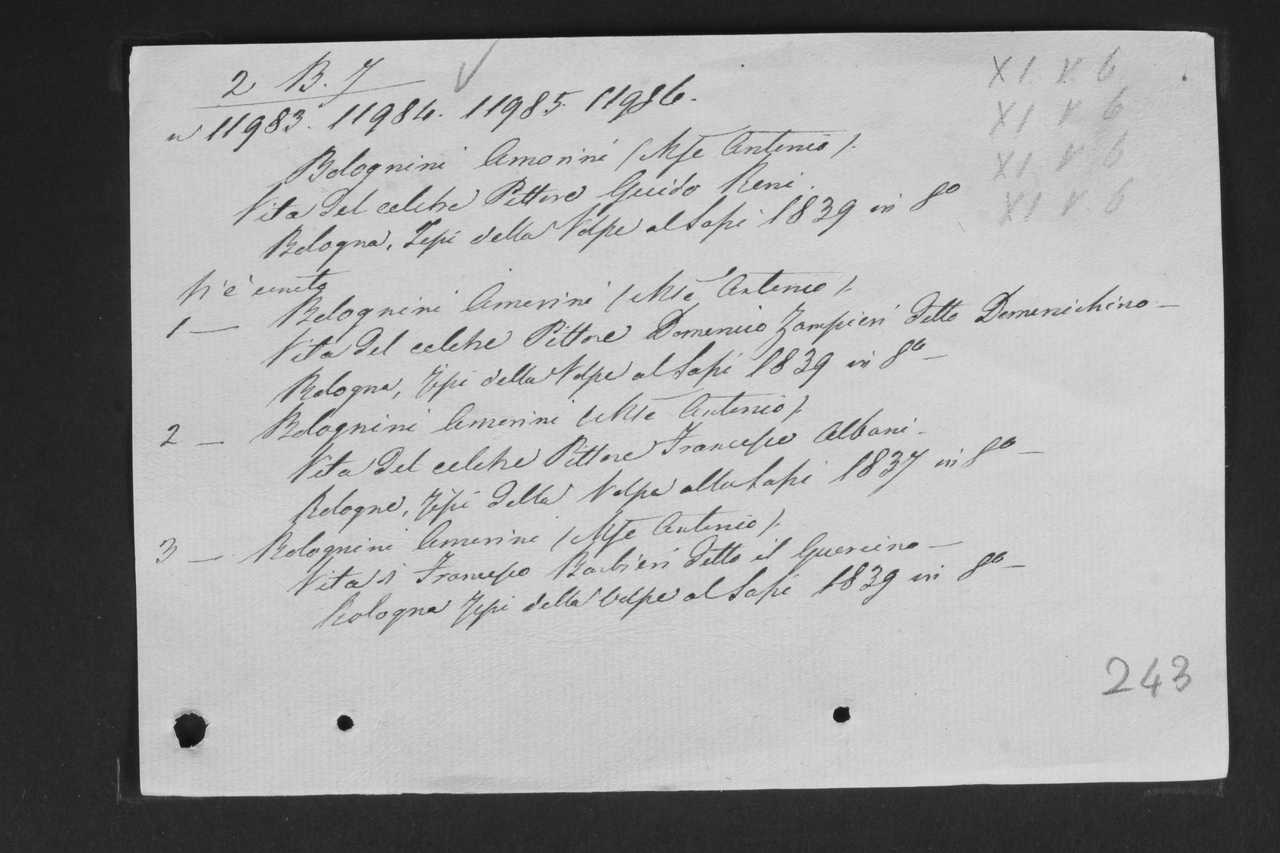 2 B. 7
n 11983. 11984. 11985. 11986.
XI. V. 6
XI V 6
XI V. 6
XI V 6
Bolognini Amorini (Mse Antonio).
Vita del celebre Pittore Guido Reni.
Bologna, Tipi della Volpe al Sassi 1839 in 8o
V'è unito
1 — Bolognini Amorini (Mse Antonio).
Vita del celebre Pittore Domenico Zampieri detto Domenichino —
Bologna, Tipi della Volpe al Sassi 1839 in 8o —
2 — Bolognini Amorini (Mse Antonio).
Vita del celebre Pittore Francesco Albani —
Bologna, Tipi della Volpe alla Sassi 1837 in 8o —
3 — Bolognini Amorini (Mse Antonio).
Vita di Francesco Barbieri detto il Guercino —
Bologna Tipi della Volpe al Sassi 1839 in 8o —
243